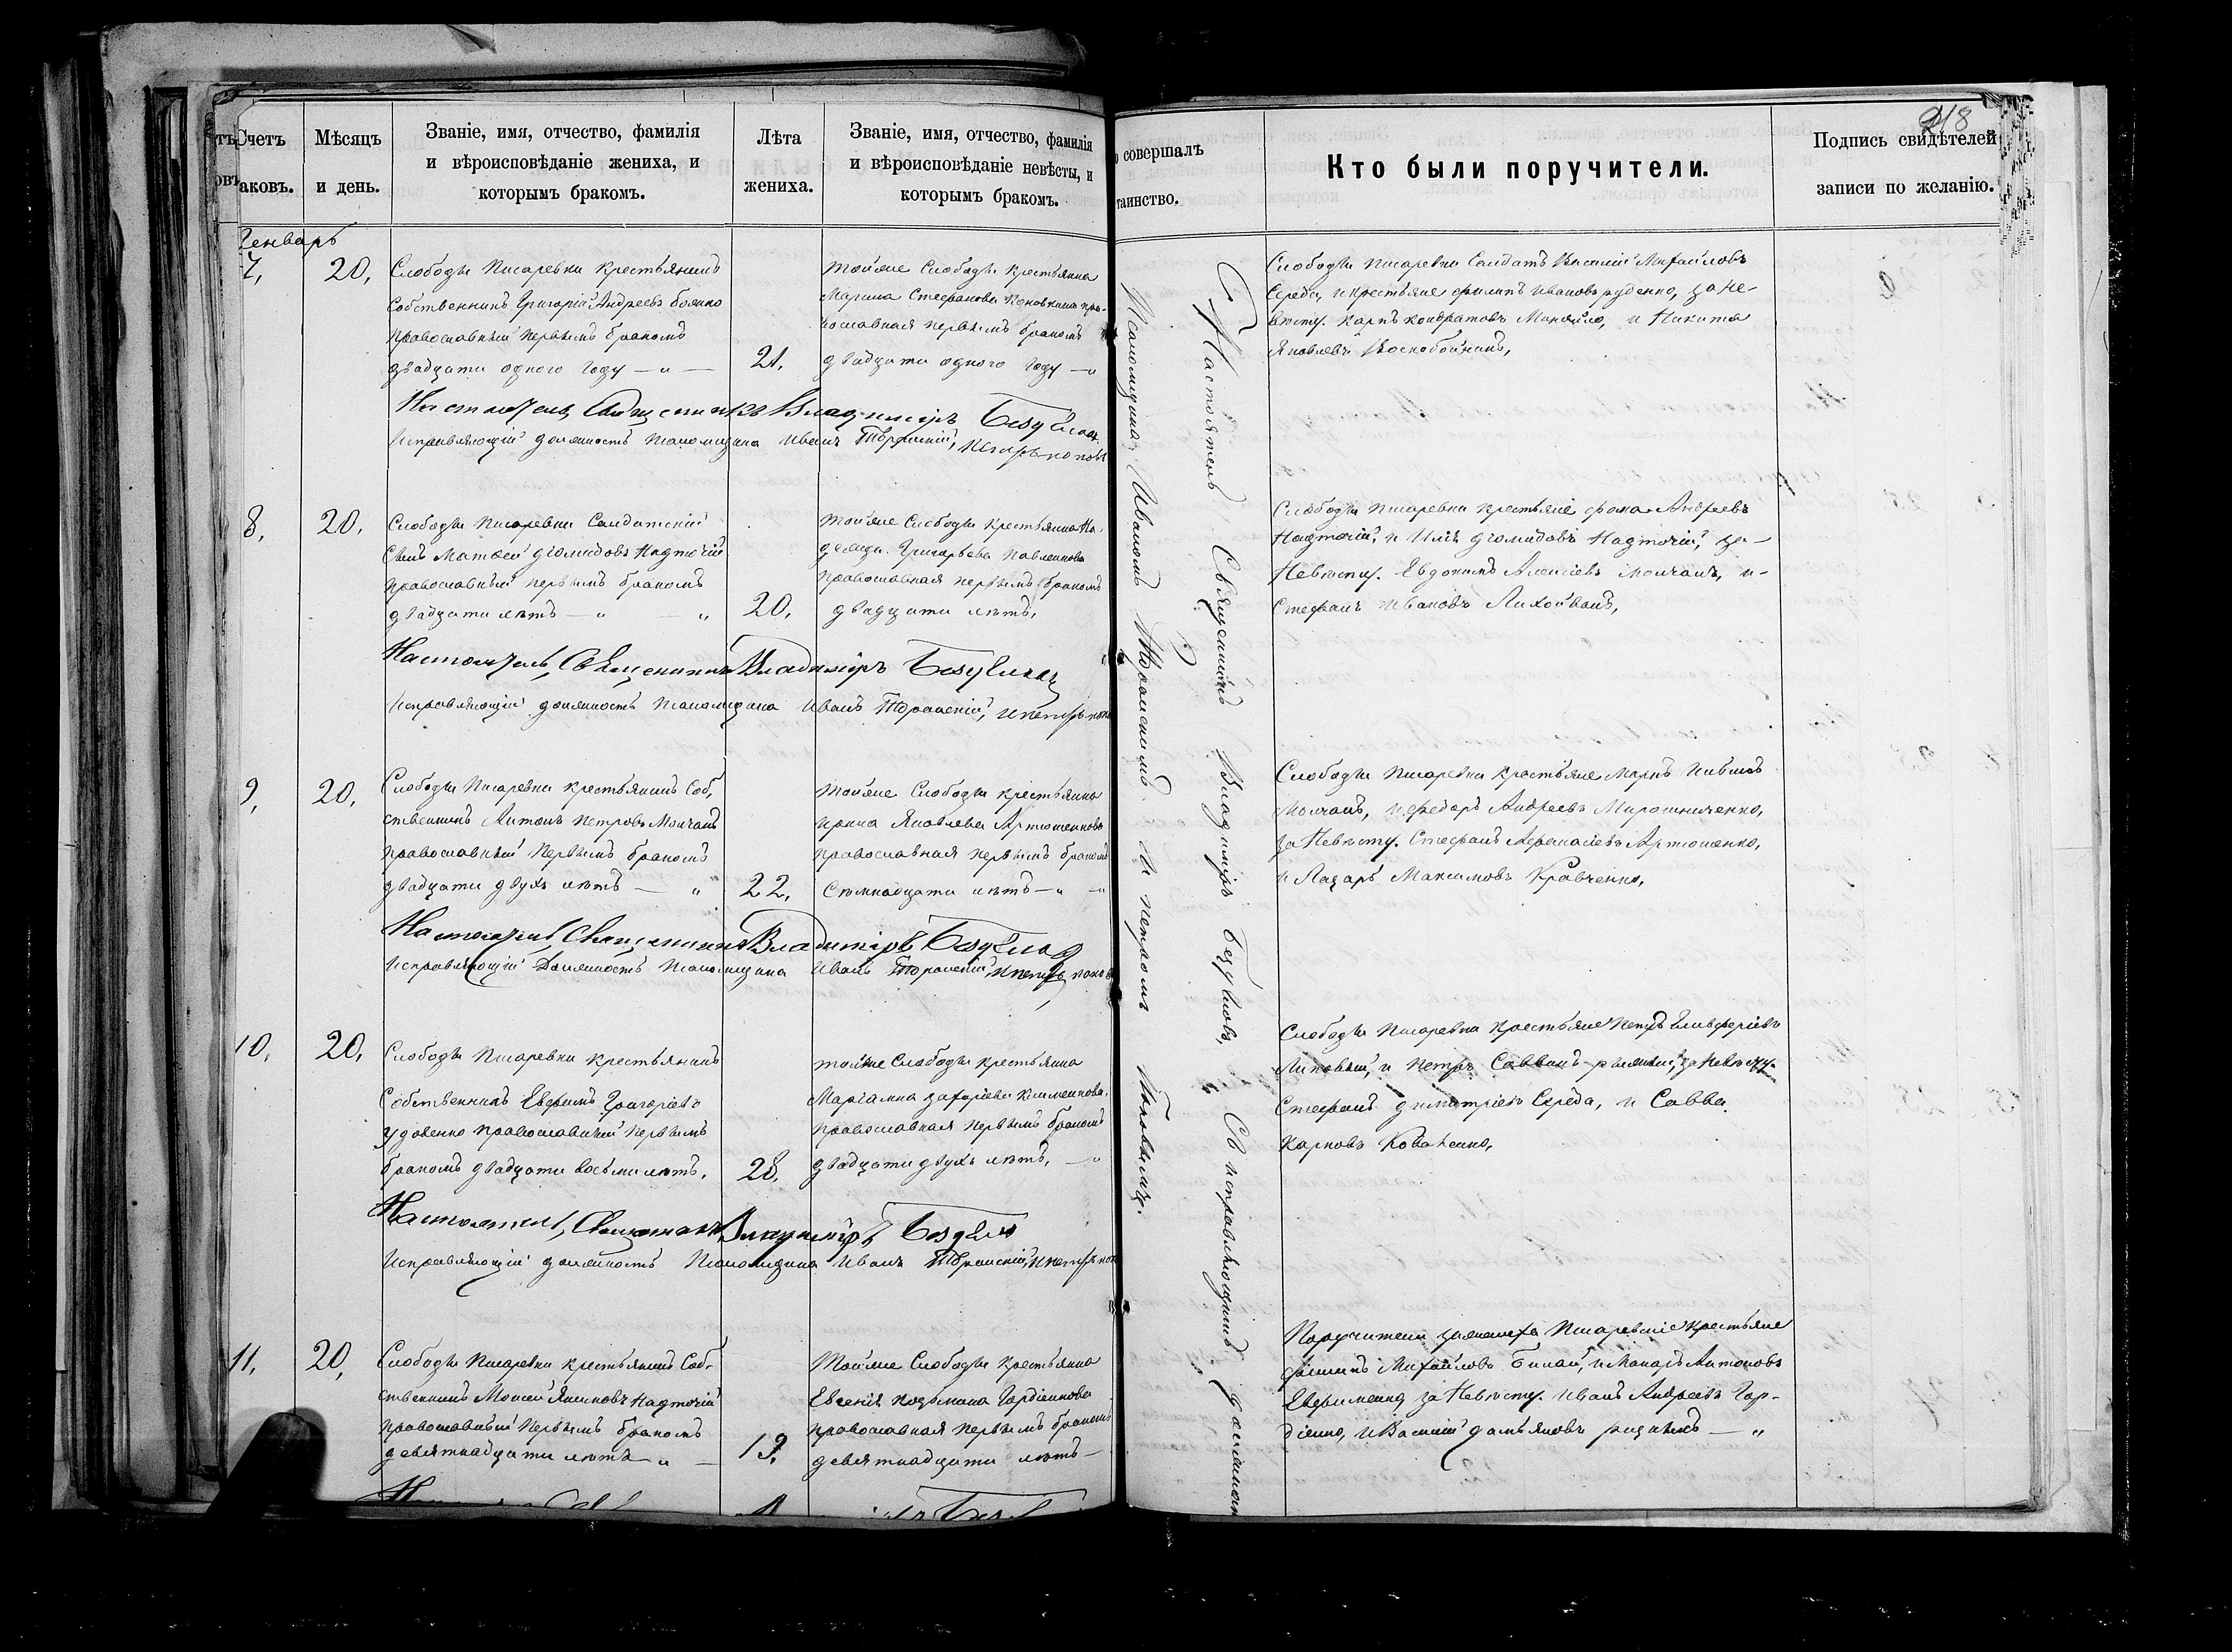 Счетъ
аковъ.
Мѣсяцъ
и день.
Званіе, имя, отчество, фамилія
и вѣроисповѣданіе жениха, и
которымъ бракомъ.
Лѣта
жениха.
Званіе, имя, отчество, фамилія
и вѣроисповѣданіе невѣсты, и
которымъ бракомъ.
Генварь
7,
20,
Слободы Писаревки крестьянинъ
Собственникъ Григорій Андреевъ Бойко
православный первымъ бракомъ
двадцати одного году
21.
тойже Слободы крестьянка
Марина Стефанова пра-
вославная первымъ бракомъ
двадцати одного году
Настоятель Священникъ Владиміръ
Исправляющій должность Псаломщика Иванъ
8,
20,
Слободы Писаревки Солдатскій
Сынъ Матвей Дiомидовъ Надточій
православный первымъ бракомъ
двадцати лѣтъ
20,
тойже Слободы крестьянка На-
дежда Григорьева Павленкова
православная первымъ бракомъ
двадцати лѣтъ,
Настоятель, Священникъ Владиміръ
Исправляющій должность Псаломщика Иванъ
9,
20,
Слободы Писаревки крестьянинъ Соб,
ственникъ Антонъ Петровъ Молчанъ
православный первымъ бракомъ
двадцати двухъ лѣтъ
22,
тойже Слободы крестьянка
Ирина Яковлева Артюшенкова
православная первымъ бракомъ
Семнадцати лѣтъ
Настоятель, Священникъ Владиміръ
Исправляющій Должность Псаломщика Иванъ
10,
20,
Слободы Писаревки крестьянинъ
Собственникъ Евфимъ Григорьевъ
Удовенко православный первымъ
бракомъ двадцати восьми лѣтъ,
28,
тойже Слободы крестьянка
Маріанна Захаріева Клименкова,
православная первымъ бракомъ
двадцати двухъ лѣтъ,
Настоятель, Священникъ Владиміръ
Исправляющій должность Псаломщика Иванъ
11,
20,
Слободы Писаревки крестьянинъ Соб-
ственникъ Моисей Якимовъ Надточій
православный первымъ бракомъ
девятнадцати лѣтъ
19,
Тойже Слободы крестьянка
Евгенія Козьмина Гордіенкова
православная первымъ бракомъ
девятнадцати лѣтъ
совершалъ
таинство.
Кто были поручители.
Подпись свидѣтелей
записи по желанію.
218
Настоятель Священникъ Владиміръ Съ исправляющимъ должность
Псаломщика Иваномъ и Петромъ
Слободы Писаревки Солдатъ Василій Михайловъ
Середа, и крестьяне Филиппъ Ивановъ Руденко, за не-
вѣсту. Карпъ Кондратовъ и Никита
Яковлевъ Воскобойникъ,
Слободы Писаревки крестьяне Фома Андреевъ
Надточій, и Илія Дiомидовъ Надточій, за-
Невѣсту. Евдокимъ Алексіевъ Молчанъ, и-
Стефанъ Ивановъ Лихойванъ,
Слободы Писаревки крестьяне Маркъ
Молчанъ, и Федоръ Андреевъ Мирошниченко,
за Невѣсту. Стефанъ Афанасіевъ Артюшенко,
и Лазарь Максимовъ Кравченко,
Слободы Писаревки крестьяне Петръ Елевферіевъ
Липовый, и Петръ Саввинъ за Невѣсту.
Стефанъ Димитріевъ Середа, и Савва
Карповъ Коваленко,
Поручители за жениха Писаревскіе крестьяне
Филиппъ Михайловъ и Макаръ Антоновъ
Евфименко, за Невѣсту. Иванъ Андреевъ Гор-
діенко, и Василій Дамьяновъ